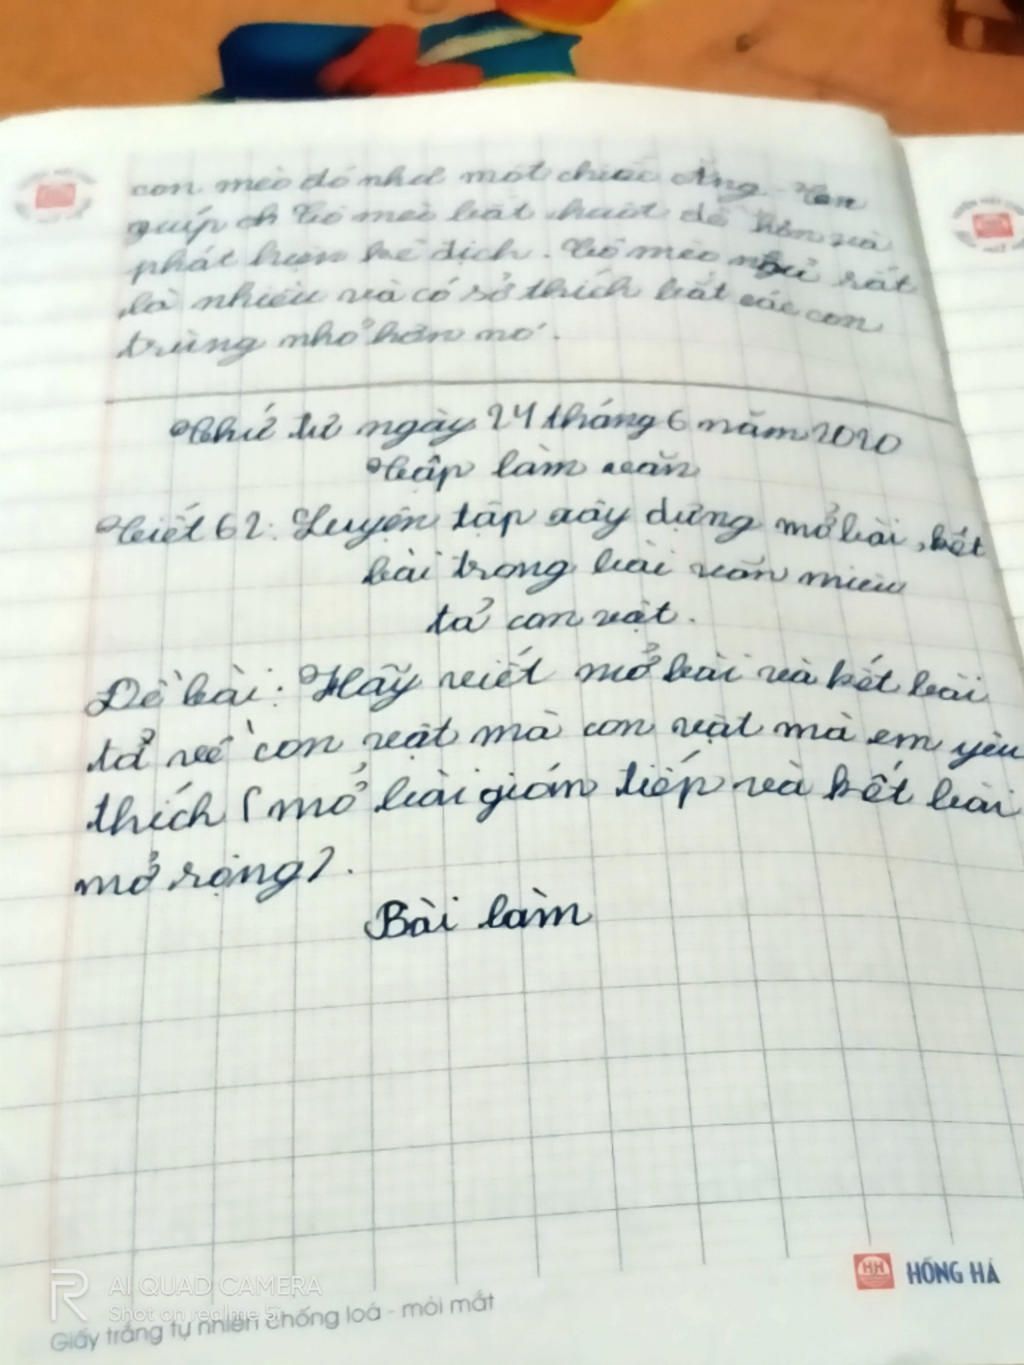 con mèo đó như một chiếc Ăng - Ten
giúp Cô mèo bắt chuột dễ hơn và
phát hiện kẻ địch. Cô mèo ngủ rất
là nhiều và có sở thích bắt các con
trùng nhỏ hơn nó.
Thứ tư ngày 24 tháng 6 năm 2020
Tập làm văn
Tiết 62: Luyện tập xây dựng mở bài, kết
bài trong bài văn miêu
tả con vật.
Đề bài: Hãy viết mở bài và kết bài
tả về con vật mà con vật mà em yêu
thích (mở bài gián tiếp và kết bài
mở rộng).
Bài làm
HH HỒNG HÀ
R AI QUAD CAMERA
Shot on realme 5i
Giấy trắng tự nhiên chống loá - mỏi mắt